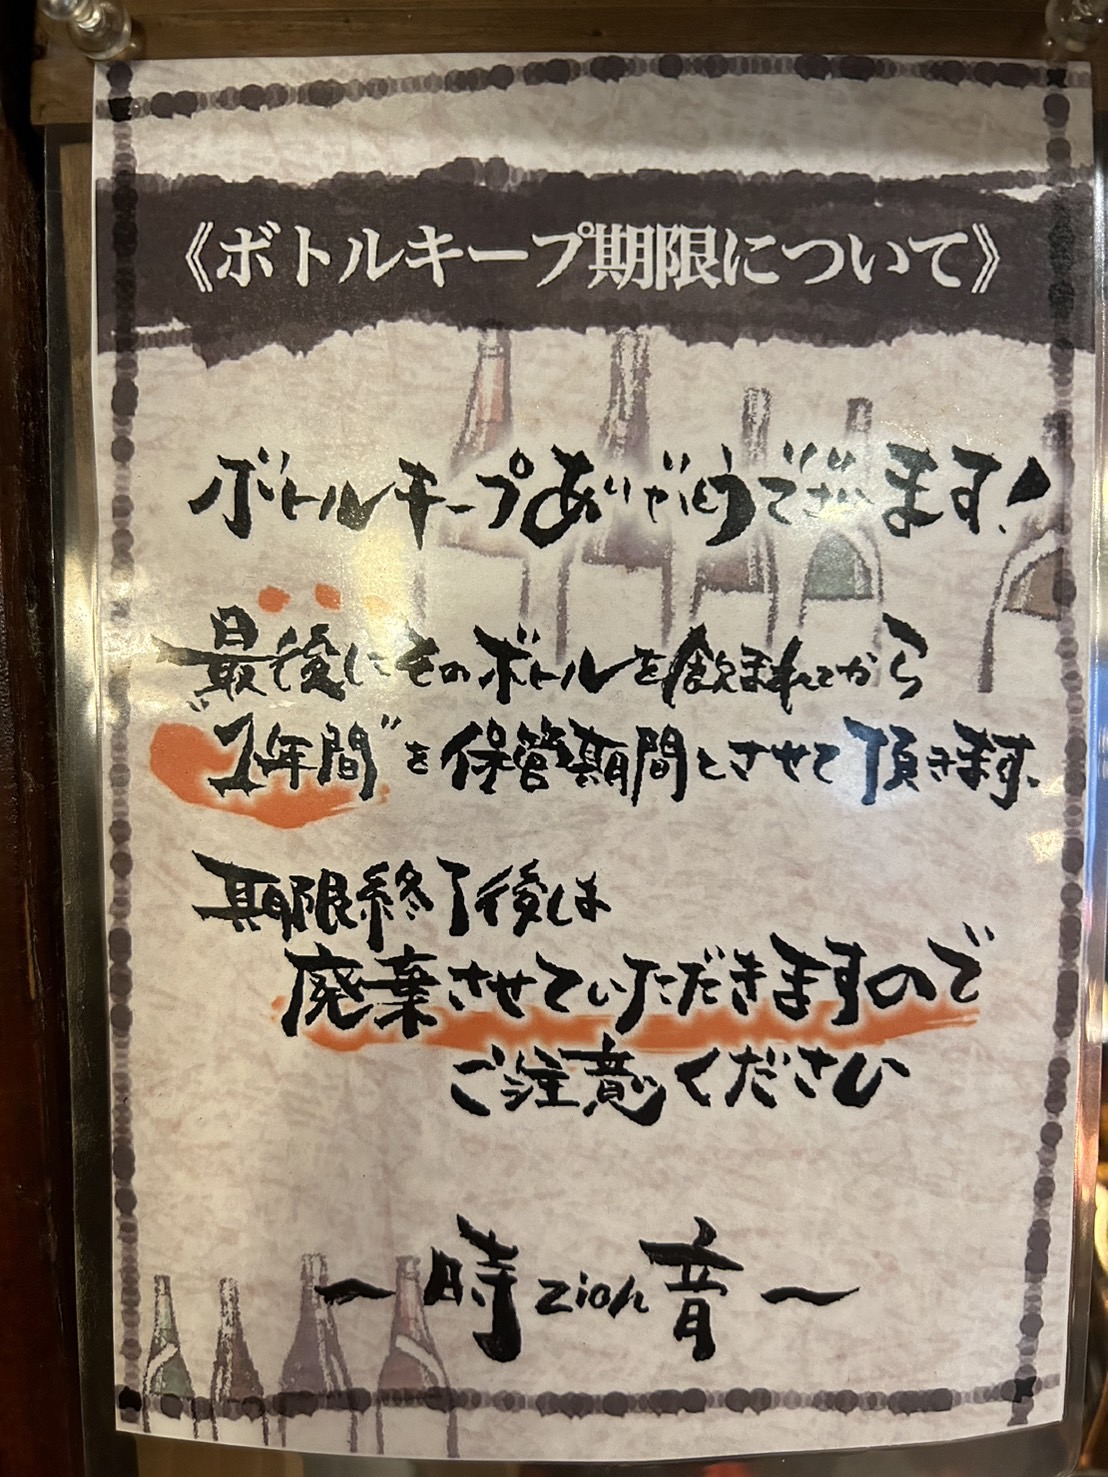 《ボトルキープ期限について》
ボトルキープありがとうございます!
最後にそのボトルを飲まれてから
"1年間"を保管期間とさせて頂きます、
期限終了後は
廃棄させていただきますので
ご注意ください
～時zion音～